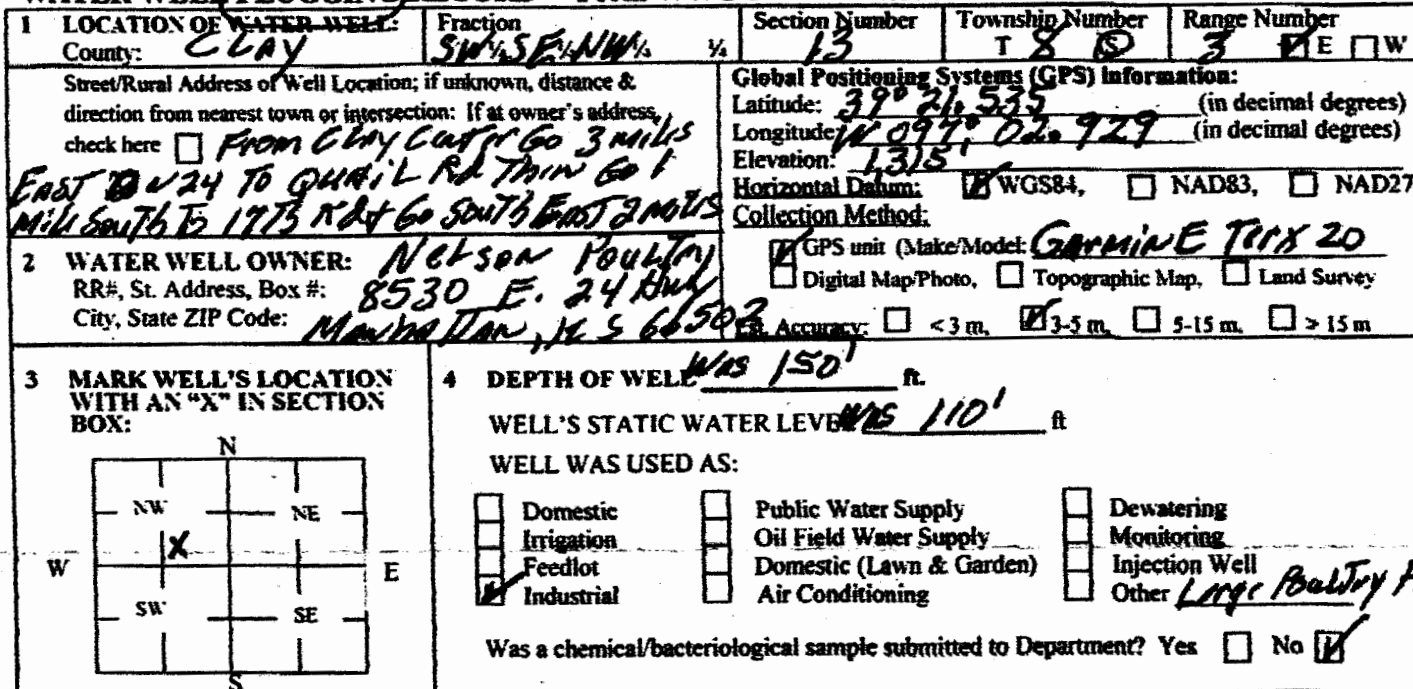 1 LOCATION OF WATER WELL:
County: CLAY
Fraction
SW ¼ SE ¼ NW ¼ ¼
Section Number
13
Township Number
T 8 S
Range Number
3 E W
Street/Rural Address of Well Location; if unknown, distance &
direction from nearest town or intersection: If at owner's address,
check here From Clay Center Go 3 miles
EAST ON 24 TO QUAIL Rd Then Go 1
Mile South To 17Th Rd & Go South East
Global Positioning Systems (GPS) Information:
Latitude: 39° 21.535 (in decimal degrees)
Longitude: W 097° 02.929 (in decimal degrees)
Elevation: 1,315'
Horizontal Datum: WGS84, NAD83, NAD27
Collection Method:
GPS unit (Make/Model: GarmiN E Terx 20
Digital Map/Photo, Topographic Map, Land Survey
Est. Accuracy: < 3 m, 3-5 m, 5-15 m, > 15 m
2 WATER WELL OWNER: Nelson Poultry
RR#, St. Address, Box #: 8530 E. 24 Hwy
City, State ZIP Code: Manhattan, KS 66502
3 MARK WELL'S LOCATION
WITH AN "X" IN SECTION
BOX:
N
NW NE
X
W E
SW SE
S
4 DEPTH OF WELL Was 150' ft.
WELL'S STATIC WATER LEVEL Was 110' ft
WELL WAS USED AS:
Domestic Public Water Supply Dewatering
Irrigation Oil Field Water Supply Monitoring
Feedlot Domestic (Lawn & Garden) Injection Well
Industrial Air Conditioning Other Large Poultry
Was a chemical/bacteriological sample submitted to Department? Yes No